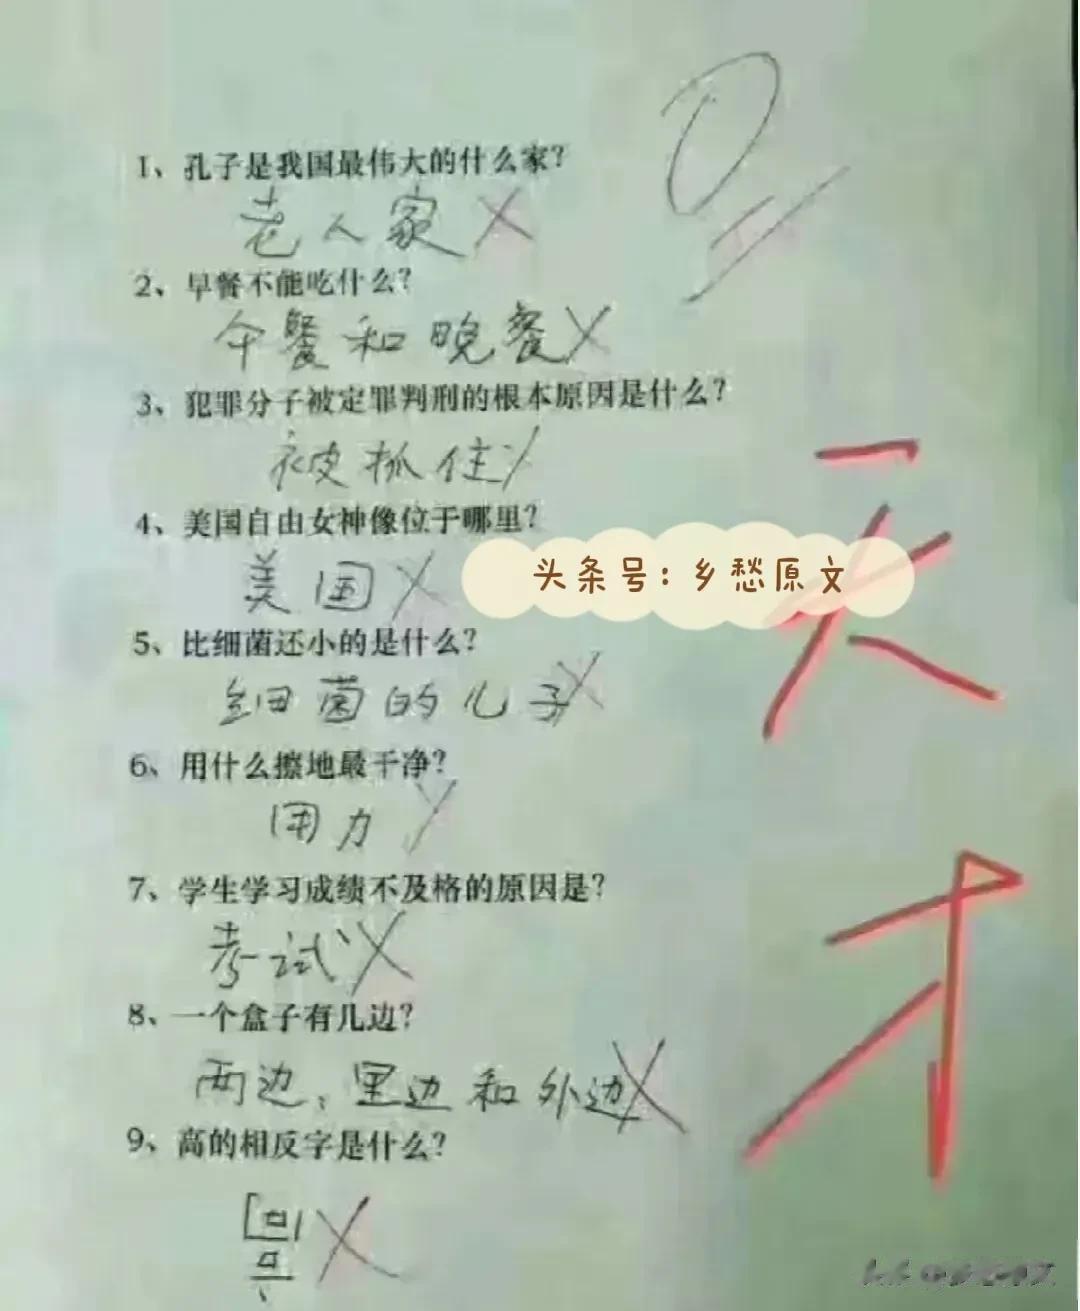 0
1、孔子是我国最伟大的什么家？
老人家 X
2、早餐不能吃什么？
午餐和晚餐 X
3、犯罪分子被定罪判刑的根本原因是什么？
被抓住 X
4、美国自由女神像位于哪里？
美国 X
头条号：乡愁原文
5、比细菌还小的是什么？
细菌的儿子 X
6、用什么擦地最干净？
用力 X
7、学生学习成绩不及格的原因是？
考试 X
8、一个盒子有几边？
两边，里边和外边 X
9、高的相反字是什么？
X
天才